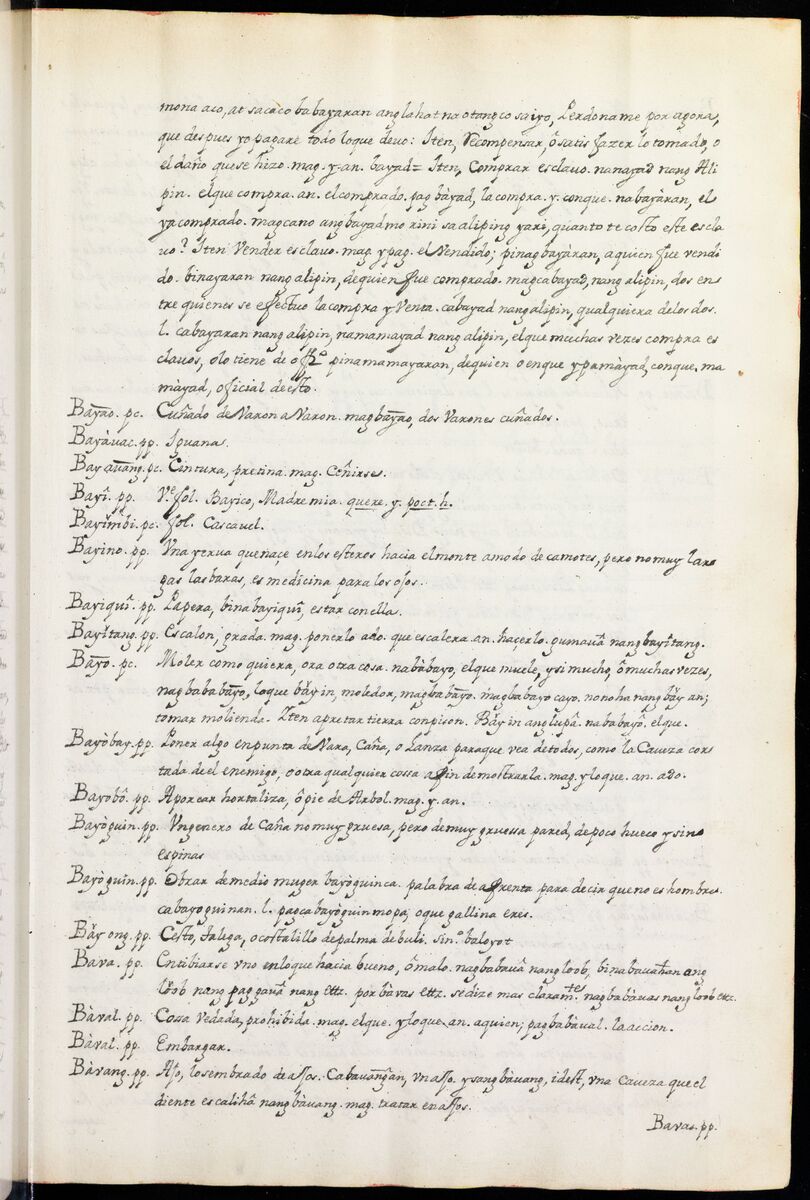 mona aco, at sacaco babayaran ang lahat na otang co sa iyo, Perdoname por agora,
que despues yo pagarè todo loque devo: Iten, Recompensar, ô satisfazer lo tomado, o
el daño que se hizo. mag. y. an. bayad= Iten, Comprar esclavo. nanayad nang Ali
pin. el que compra. an. el comprado. pag bàyad, la compra. y. conque. nabayàran, el
ya comprado. magcano ang bayad mo rini sa aliping yari, quanto te costo este escla
vo? Iten Vender esclavo. mag. y pag. el Vendido; pinagbayàran, a quien fue vendi
do. binayaran nang alipin, de quien fue comprado. magcabayad, nang alipin, dos en
tre quienes se efectuo la compra y Venta. cabayad nang alipin, qualquiera de los dos.
l. cabayaran nang alipin, namamayad nang alipin, el que muchas vezes compra es
clavos, o lo tiene de offº. pinamamayaran, de quien o enque y pamàyad, conque. ma
màyad, oficial de esto.
Bayao. pc. Cuñado de Varon a Varon. mag bayao, dos Varones cuñados.
Bayàvac. pp. Iguana.
Bayavang. pc. Cintura, pretina. mag. Ceñirse.
Bayî. pp. Vº. sol. Bayico, Madre mia. quere. y. poct. h.
Bayimbi. pc. sol. Cascavel.
Bayino. pp. Vna yerva que naçe en los esteros hacia el monte a modo de camotes, pero no muy lar
gas las baras, es medicina para los ojos.
Bayiquî. pp. Papera, binabayiquî, estar con ella.
Bayîtang. pp. Escalon, grada. mag. ponerlo ado. que escalera. an. haçerlo. gumauâ nang bayîtang.
Bayo. pc. Moler como quiera, ora otra cosa. nabàbayo, el que muele, y si mucho, ô muchas vezes,
nagbababayo, loque bayin, moledor, magbabayo. magbabayo cayo. nonoha nang bay an;
tomar molienda. Iten apretar tierra con pison. Bayin ang lupâ. nababayô. el que.
Bayòbay. pp. Poner algo en punta de Vara, Caña, o Lanza para que vea de todos, como la Caveza cor
tada de el enemigo, o otra qualquier cossa a fin de mostrarla. mag. y loque. an. ado.
Bayobô. pp. Aporcar hortaliza, ô pie de Arbol. mag. y. an.
Bayòguin. pp. Vn genero de Caña no muy gruesa, pero de muy gruessa pared, de poco hueco y sin
espinas
Bayòguin. pp. Obrar de medio muger bayòguin ca. palabra de afrenta para decir que no es hombre.
cabayoguinan. l. pagcabayòguin mo pa, o que gallina eres.
Bayong. pp. Cesto, talega, o costalillo de palma de buli. sinº. baloyot
Bava. pp. Entibiarse vno en loque hacia bueno, ô malo. nagbabauâ nang loob, binabauahan ang
loob nang paggauâ nang ettz. por bàvas ettz. se dize mas claramtes. nagbabàvas nang loob ettz.
Bàval. pp. Cossa vedada, prohibida. mag. el que. y loque. an. aquien; pagbabàval. la accion.
Bàval. pp. Embargar.
Bàvang. pp. Ajo, lo sembrado de ajos. Cabavangan, vn ajo. ysang bàvang, idest, vna Caveza que el
diente es calihâ nang bàvang. mag. tratar en ajos.
Bavas. pp.